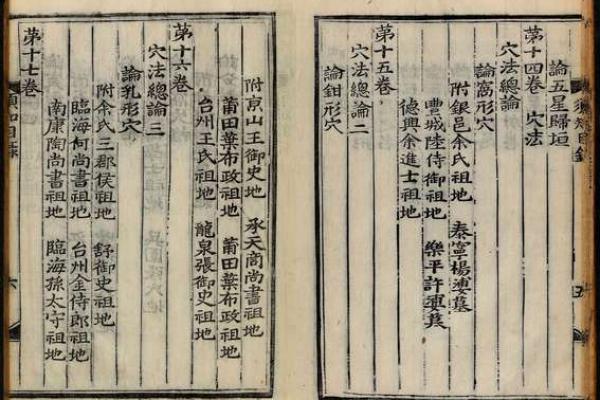 須知目錄
五
論五星歸垣
第十四卷 穴法
穴法總論
論窩形穴
附銀邑余氏祖地 秦寧楊墓
豐城陸侍御祖地 樂平許墓
德興余進士祖地
第十五卷
穴法總論二
論鉗形穴
附京山王御史地 承天商尚書祖地
莆田葉布政祖地 莆田葉布政祖地
台州王氏祖地 龍泉張御史祖地
第十六卷
穴法總論三
論乳形穴
附余氏三郡侯祖地 舒御史祖地
臨海何尚書祖地 台州金侍郎祖地
南康陶尚書祖地 臨海孫太守祖地
第十七卷
須知目錄
六